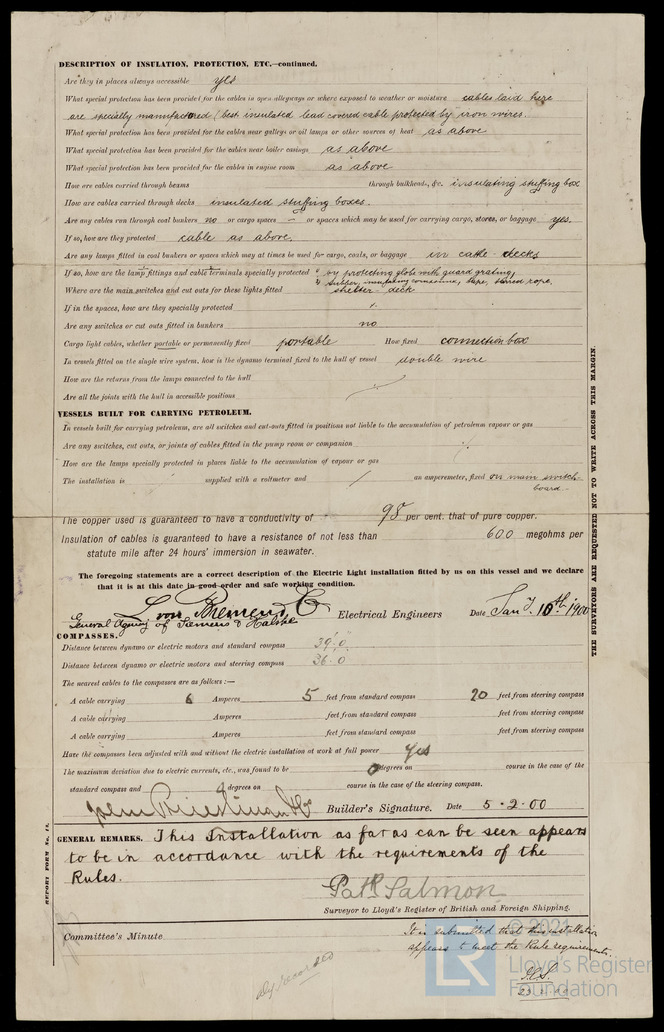 DESCRIPTION OF INSULATION, PROTECTION, ETC.—continued.
Are they in places always accessible yes
What special protection has been provided for the cables in open alleyways or where exposed to weather or moisture cables laid here
are specially manufactored (best insulated lead covered cable protected by iron wires.
What special protection has been provided for the cables near galleys or oil lamps or other sources of heat as above
What special protection has been provided for the cables near boiler casings as above
What special protection has been provided for the cables in engine room as above
How are cables carried through beams through bulkheads, &c. insulating stuffing box
How are cables carried through decks insulated stuffing boxes.
Are any cables run through coal bunkers no or cargo spaces — or spaces which may be used for carrying cargo, stores, or baggage yes.
If so, how are they protected cable as above.
Are any lamps fitted in coal bunkers or spaces which may at times be used for cargo, coals, or baggage in cattle decks
If so, how are the lamp fittings and cable terminals specially protected by protecting globe with guard grating,
rubber, insulating compound, tape, tarred rope.
Where are the main switches and cut outs for these lights fitted shelter deck
If in the spaces, how are they specially protected
Are any switches or cut outs fitted in bunkers no
Cargo light cables, whether portable or permanently fixed portable How fixed connection box
In vessels fitted on the single wire system, how is the dynamo terminal fixed to the hull of vessel double wire
How are the returns from the lamps connected to the hull
Are all the joints with the hull in accessible positions
VESSELS BUILT FOR CARRYING PETROLEUM.
In vessels built for carrying petroleum, are all switches and cut-outs fitted in positions not liable to the accumulation of petroleum vapour or gas
Are any switches, cut outs, or joints of cables fitted in the pump room or companion
How are the lamps specially protected in places liable to the accumulation of vapour or gas
The installation is supplied with a voltmeter and an amperemeter, fixed on main switch-
board.
The copper used is guaranteed to have a conductivity of 98 per cent. that of pure copper.
Insulation of cables is guaranteed to have a resistance of not less than 600 megohms per
statute mile after 24 hours' immersion in seawater.
The foregoing statements are a correct description of the Electric Light installation fitted by us on this vessel and we declare
that it is at this date in good order and safe working condition.
L von Bremen & Co Electrical Engineers Date Jan 10th 1900
General Agency of Siemens & Halske
COMPASSES.
Distance between dynamo or electric motors and standard compass 39'.0
Distance between dynamo or electric motors and steering compass 36'.0
The nearest cables to the compasses are as follows:—
A cable carrying 6 Amperes 5 feet from standard compass 20 feet from steering compass
A cable carrying Amperes feet from standard compass feet from steering compass
A cable carrying Amperes feet from standard compass feet from steering compass
Have the compasses been adjusted with and without the electric installation at work at full power Yes
The maximum deviation due to electric currents, etc., was found to be 0 degrees on course in the case of the
standard compass and degrees on course in the case of the steering compass.
John Priestman & Co Builder's Signature. Date 5.2.00
GENERAL REMARKS. This Installation as far as can be seen appears
to be in accordance with the requirements of the
Rules.
Patk Salmon
Surveyor to Lloyd's Register of British and Foreign Shipping.
Committee's Minute
It is submitted that this installation
appears to meet the Rule requirements.
THE SURVEYORS ARE REQUESTED NOT TO WRITE ACROSS THIS MARGIN.
REPORT FORM No. 14.
© 2021
LR
Lloyd's Register
Foundation